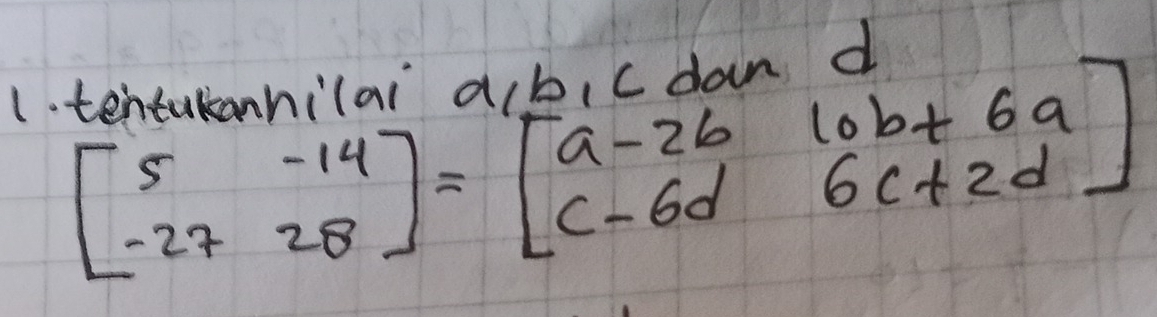 1. tentukan nilai a, b, c dan d
[5 -14] = [a-2b 10b+6a]
[-27 28] [c-6d 6c+2d]